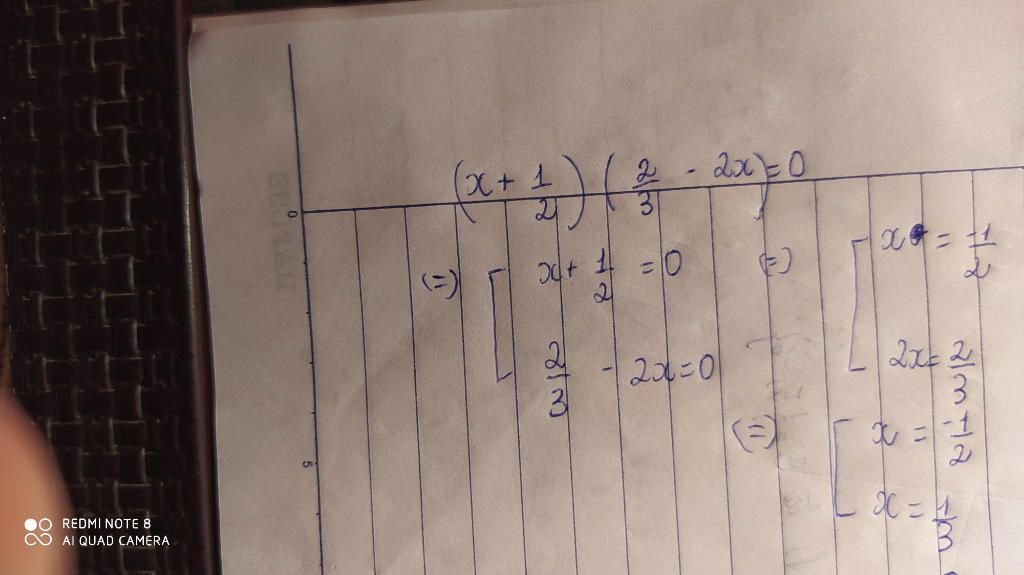 (x + 1/2) . (2/3 - 2x) = 0
(=) [ x + 1/2 = 0 (=) [ x = -1/2
2/3 - 2x = 0 2x = 2/3
(=) [ x = -1/2
x = 1/3
0
5
REDMI NOTE 8
AI QUAD CAMERA